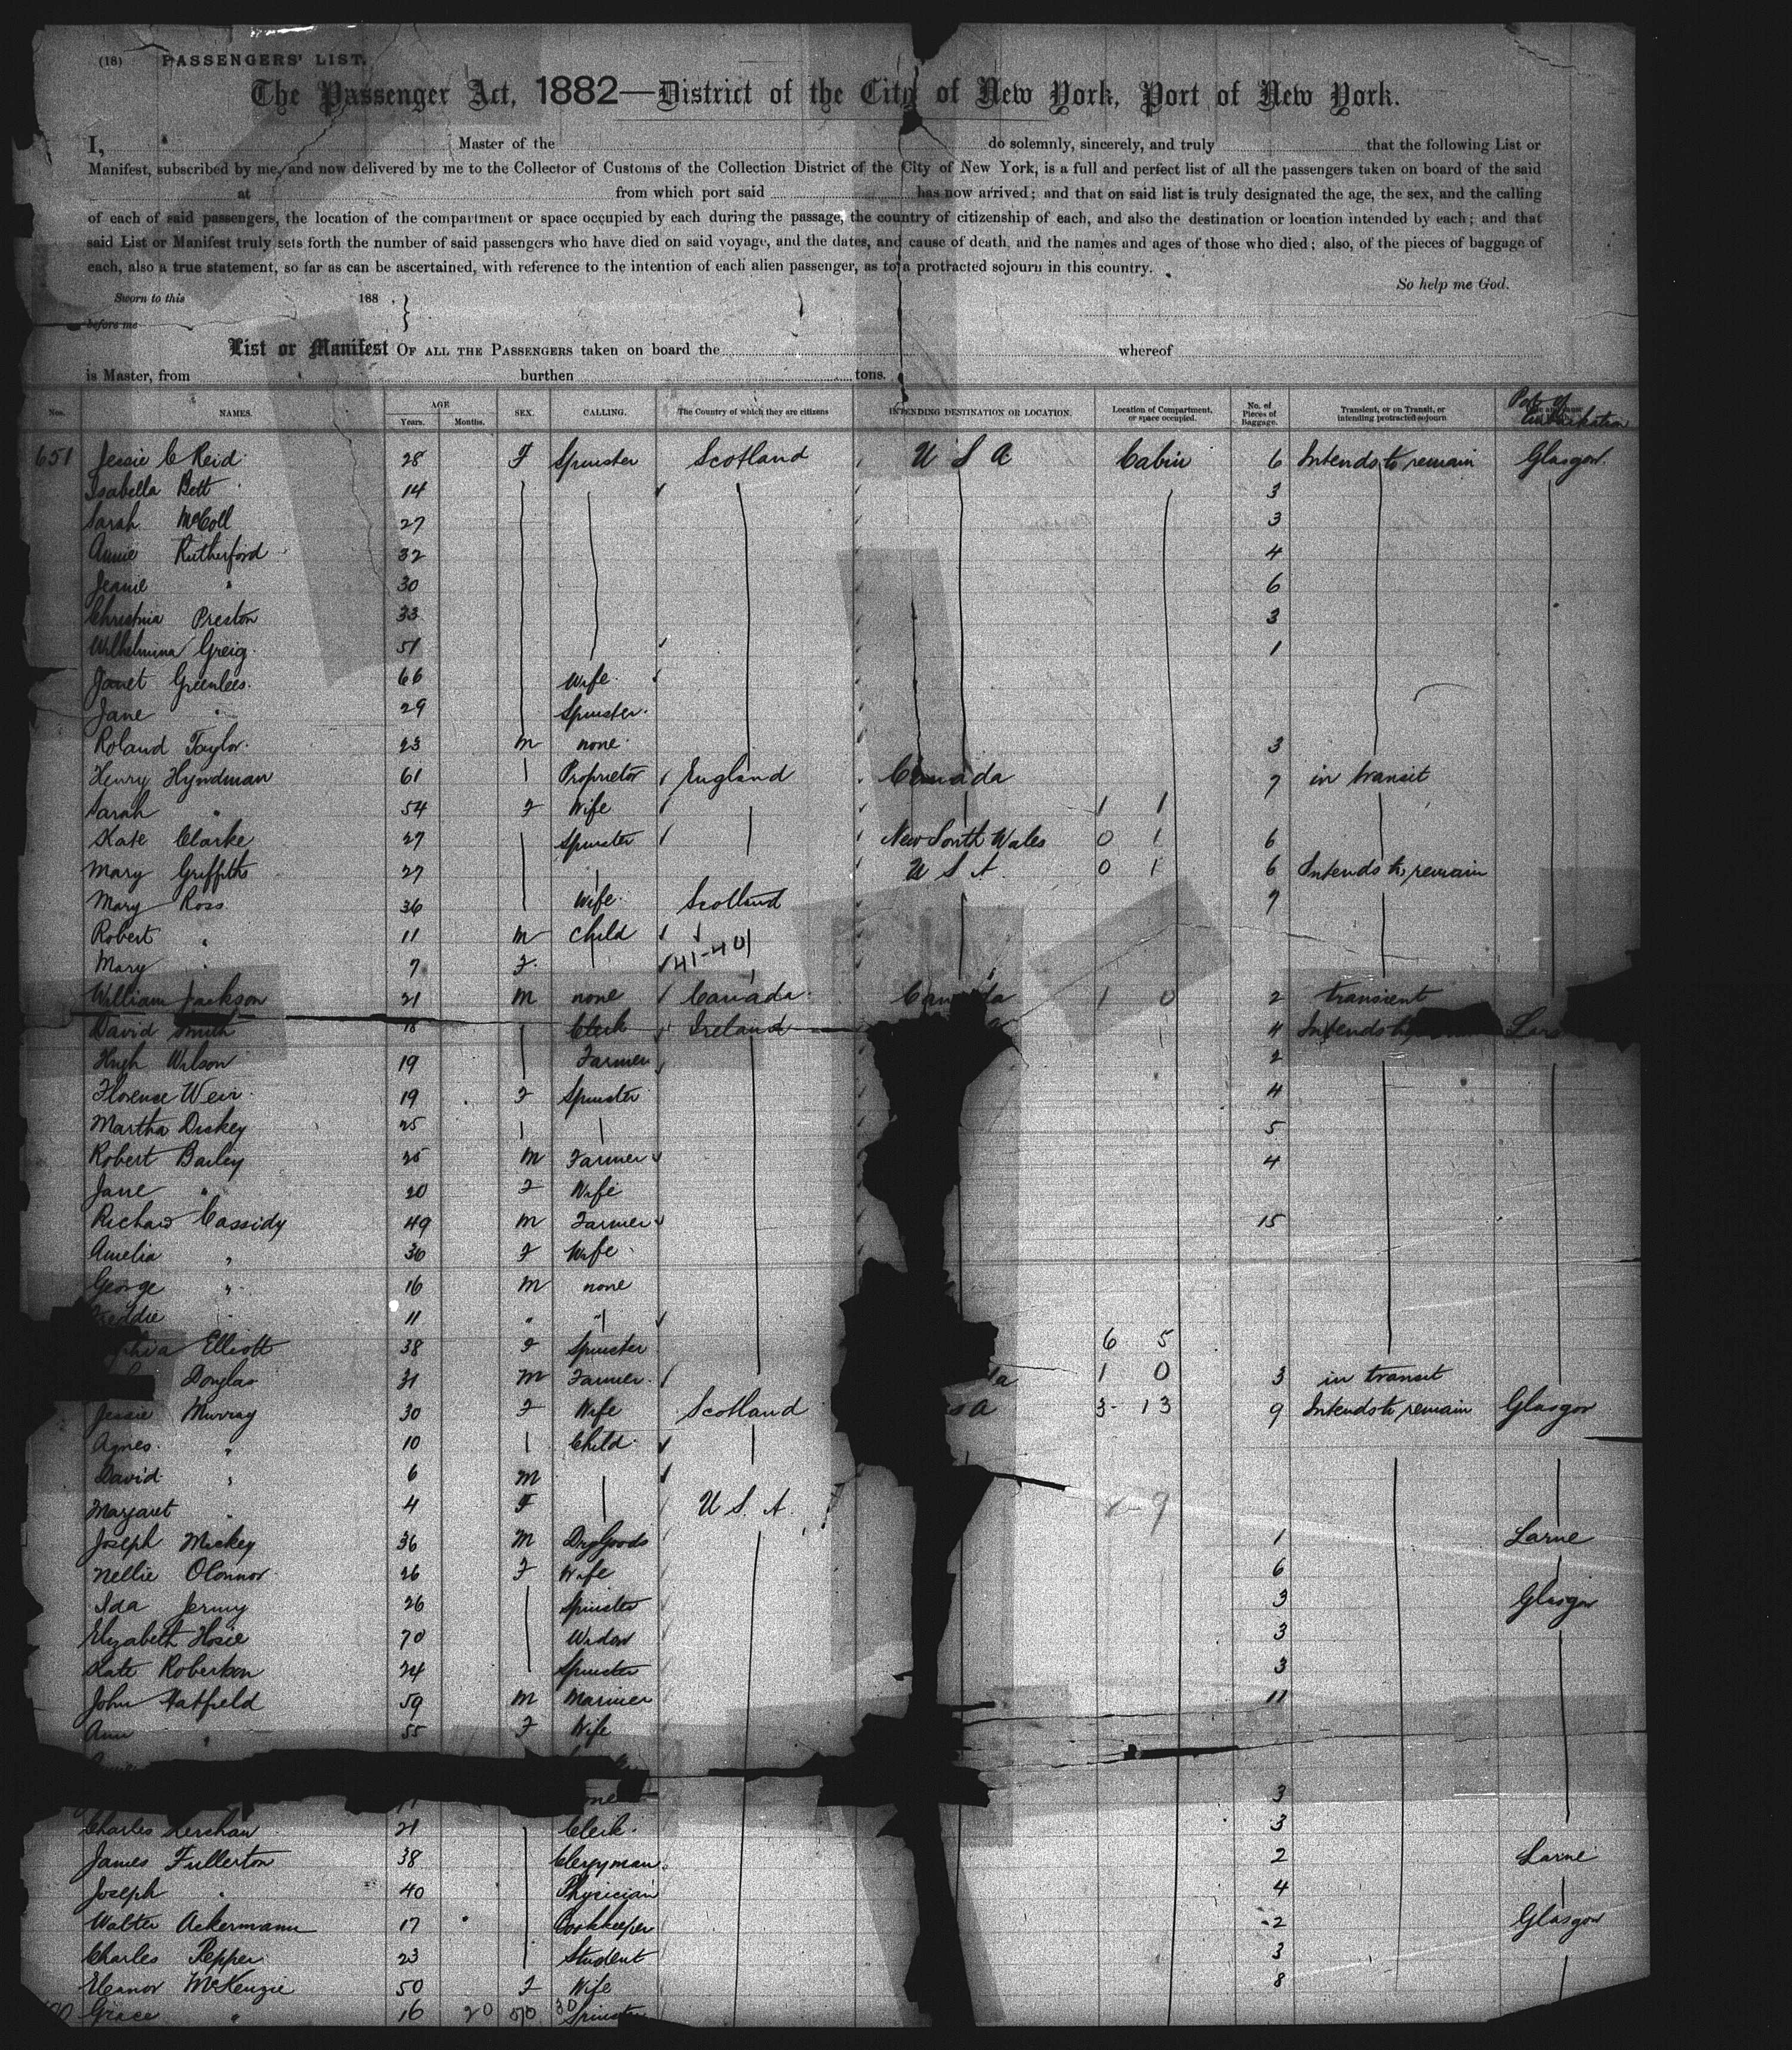 (18) PASSENGERS' LIST.
The Passenger Act, 1882—District of the City of New York, Port of New York.
I, Master of the do solemnly, sincerely, and truly that the following List or
Manifest, subscribed by me, and now delivered by me to the Collector of Customs of the Collection District of the City of New York, is a full and perfect list of all the passengers taken on board of the said
at from which port said has now arrived; and that on said list is truly designated the age, the sex, and the calling
of each of said passengers, the location of the compartment or space occupied by each during the passage, the country of citizenship of each, and also the destination or location intended by each; and that
said List or Manifest truly sets forth the number of said passengers who have died on said voyage, and the dates, and cause of death, and the names and ages of those who died; also, of the pieces of baggage of
each, also a true statement, so far as can be ascertained, with reference to the intention of each alien passenger, as to a protracted sojourn in this country.
So help me God.
Sworn to this 188 .
before me
List or Manifest OF ALL THE PASSENGERS taken on board the whereof
is Master, from burthen tons.
Nos. NAMES. AGE Years. Months. SEX. CALLING. The Country of which they are citizens INTENDING DESTINATION OR LOCATION. Location of Compartment, or space occupied. No. of Pieces of Baggage. Transient, or on Transit, or intending protracted sojourn Port of Embarkation
651 Jessie C Reid 28 F Spinster Scotland U S A Cabin 6 Intends to remain Glasgow
Isabella Bett 14 3
Sarah McColl 27 3
Annie Rutherford 32 4
Jeanie " 30 6
Christina Preston 33 3
Wilhelmina Greig 51 1
Janet Greenlees 66 Wife
Jane " 29 Spinster
Roland Taylor 23 M none 3
Henry Hyndman 61 Proprietor England Canada 7 in transit
Sarah " 54 F Wife 1 1
Kate Clarke 27 Spinster New South Wales 0 1 6
Mary Griffiths 27 U S A 0 1 6 Intends to remain
Mary Ross 36 Wife Scotland 7
Robert " 11 M Child
Mary " 7 F 41-40
William Jackson 21 M none Canada 1 0 2 transient
David Smith 18 Clerk Ireland 4 Intends
Hugh Wilson 19 Farmer 2
Florence Weir 19 F Spinster 4
Martha Dickey 25 5
Robert Bailey 25 M Farmer 4
Jane " 20 F Wife
Richard Cassidy 49 M Farmer 15
Amelia " 30 F Wife
George " 16 M none
11 " "
Elliott 38 F Spinster 6 5
Douglas 31 M Farmer 1 0 3 in transit
Jessie Murray 30 F Wife Scotland 3-13 9 Intends to remain Glasgow
Agnes " 10 Child
David " 6 M
Margaret " 4 F U S. A.
Joseph Mickey 36 M Dry Goods 1 Larne
Nellie OConnor 26 F Wife 6
Ida Jermy 26 Spinster 3 Glasgow
Elizabeth Hosie 70 Widow 3
Kate Robertson 24 Spinster 3
John Hatfield 59 M Mariner 11
Ann " 55 F Wife
3
Charles 21 Clerk 3
James Fullerton 38 Clergyman 2 Larne
Joseph " 40 Physician 4
Walter Ackermann 17 Bookkeeper 2 Glasgow
Charles Pepper 23 Student 3
Eleanor McKenzie 50 F Wife 8
Grace " 16 20 50 30 Spinster